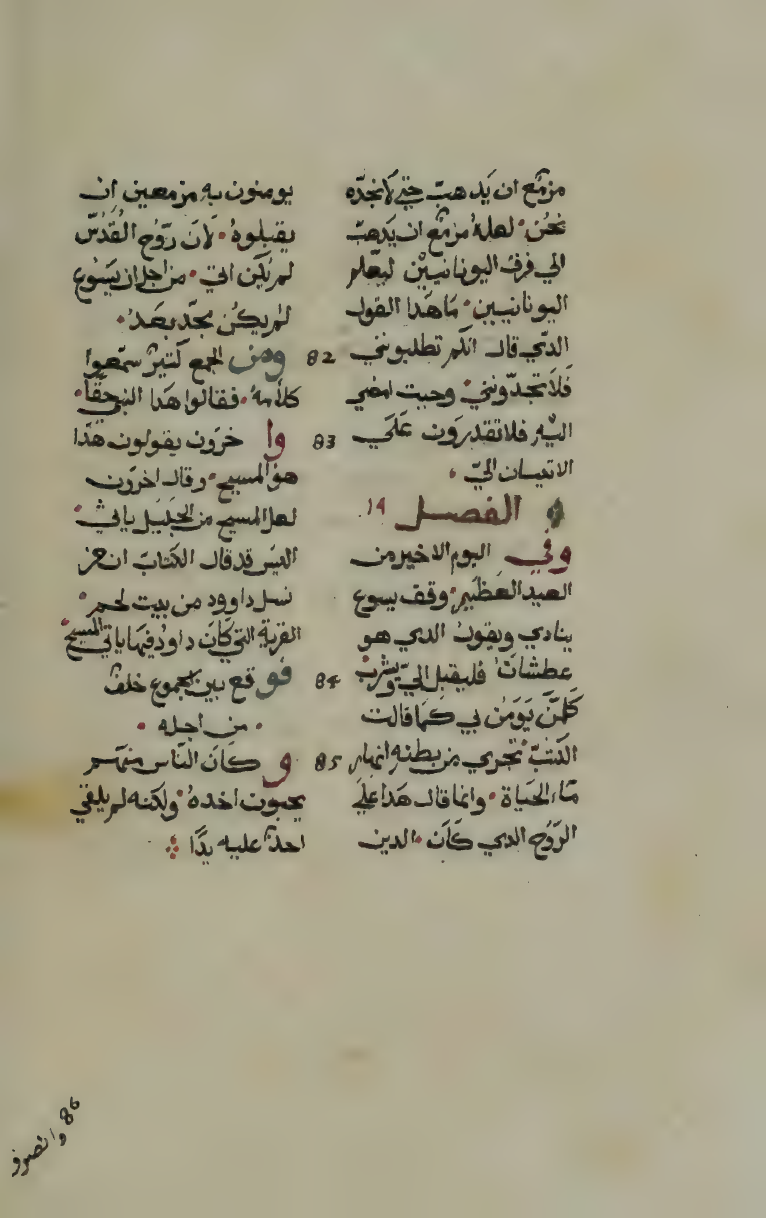 مزمع ان يدهب حتي لا نجده
نحن لعله مزمع ان يدهب
الي فرق اليونانيين ليعلم
اليونانيين ما هدا القول
الدي قال انكم تطلبونني
فلا تجدونني وحيت امضي
اليه فلا تقدرون علي
الاتيان الي
الفصل 19
وفي اليوم الاخير من
العيد العظيم وقف يسوع
ينادي ويقول الدي هو
عطشان فليقبل الي ويشرب
كلمن يومن بي كما قالت
الكتب تجري من بطنه انهار
ماء الحياة وانما قال هدا علي
الروح الدي كان الدين
يومنون به مزمعين ان
يقبلوه لان روح القدس
لم يكن اتي من اجل ان يسوع
لم يكن مجد بعد
82 ومن الجمع كتير سمعوا
كلامه فقالوا هدا النبي حقا
83 واخرون يقولون هدا
هو المسيح وقال اخرون
لعل المسيح من الجليل ياتي
اليس قد قال الكتاب انه من
نسل داوود من بيت لحم
القرية التي كان داود فيها ياتي المسيح
84 فوقع بين الجموع خلف
من اجله
85 وكان الناس منهم
يحبون اخده ولكنه لم يلقي
احد عليه يدا
86 وانصرف